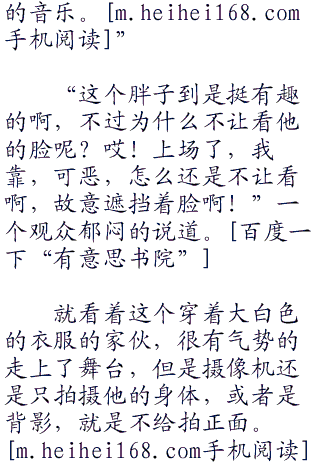 的音乐。[m.heihei168.com
手机阅读]”
“这个胖子到是挺有趣
的啊，不过为什么不让看他
的脸呢？哎！上场了，我
靠，可恶，怎么还是不让看
啊，故意遮挡着脸啊！”一
个观众郁闷的说道。[百度一
下“有意思书院”]
就看着这个穿着大白色
的衣服的家伙，很有气势的
走上了舞台，但是摄像机还
是只拍摄他的身体，或者是
背影，就是不给拍正面。
[m.heihei168.com手机阅读]